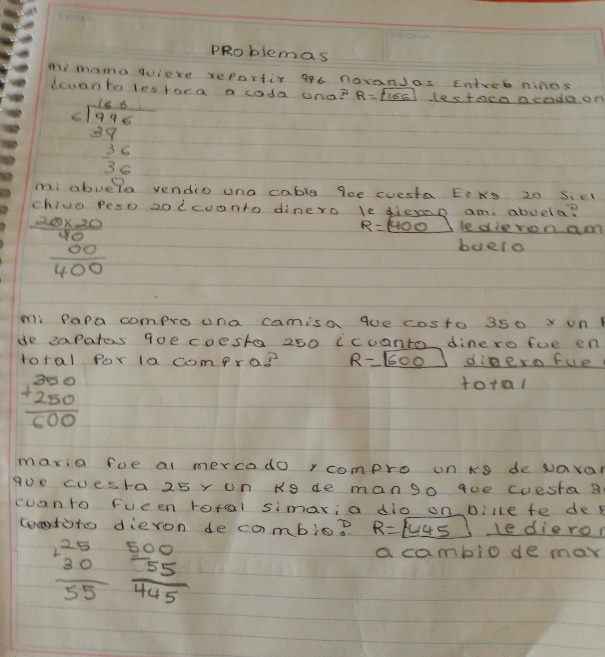 PRoblemas
mi mama quiere repartir 996 naranJas Entre6 niños
¿cuanto les toca a cada uno? R=166 les toca a cada on
166
6 996
39
36
36
0
mi abuela vendio una cabla que cuesta El Kg 20 Si el
chivo Peso 20 ¿cuanto dinero le dieron ami abuela?
20x20 R=400 le dieron am
40 buela
00
400
mi Papa compro una camisa que costo 350 x un
de zapatos que cuesta 250 ¿cuanto dinero fue en
total Por la compra? R=600 dinero fue
350 total
+250
600
maria fue al mercado y compro un kg de naran
que cuesta 25 y un Kg de mango que cuesta 3
cuanto fue en total si maria dio un billete de 5
dieron de cambio? R=445 le dieron
+25 500 a cambio de mar
30 -55
55 445